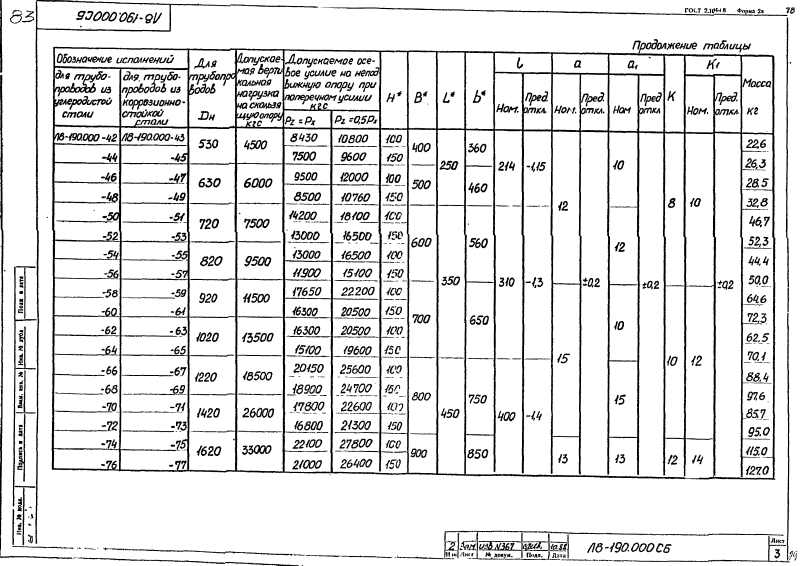 83
Л8-190.000СБ
ГОСТ 2.104-68 Форма 2а
78
Продолжение таблицы
Обозначение исполнений
для трубопроводов из углеродистой стали
для трубопроводов из коррозионностойкой стали
Для трубопроводов Dн
Допускаемая вертикальная нагрузка на скользящую опору кгс
Допускаемое осевое усилие на неподвижную опору при поперечном усилии кгс
Pz = Px
Pz = 0,5Px
H*
B*
L*
b*
l
Ном.
Пред. откл.
a
Ном.
Пред. откл.
a₁
Ном
Пред. откл
K
K₁
Ном.
Пред. откл
Масса кг
Л8-190.000-42 Л8-190.000-43 530 4500 8430 10800 100 400 250 360 214 -1,15 12 ±0,2 10 ±0,2 8 10 ±0,2 22,6
-44 -45 7500 9600 150 26,3
-46 -47 630 6000 9500 12000 100 500 460 28.5
-48 -49 8500 10760 150 32,8
-50 -51 720 7500 14200 18100 100 600 350 560 310 -1,3 12 46,7
-52 -53 13000 16500 150 52,3
-54 -55 820 9500 13000 16500 100 44,4
-56 -57 11900 15100 150 50,0
-58 -59 920 11500 17650 22200 100 700 650 15 10 10 12 64,6
-60 -61 16300 20500 150 72,3
-62 -63 1020 13500 16300 20500 100 62,5
-64 -65 15100 19600 150 70,1
-66 -67 1220 18500 20150 25600 100 800 450 750 400 -1,4 15 88,4
-68 -69 18900 24700 150 97.6
-70 -71 1420 26000 17800 22600 100 85.7
-72 -73 16800 21300 150 95.0
-74 -75 1620 33000 22100 27800 100 900 850 13 13 12 14 115.0
-76 -77 21000 26400 150 127.0
Подп и дата
Инв. № дубл
Взам. инв. №
Подпись и дата
Инв. № подл.
2 Зам изв. N367 10.88
Изм Лист № докум. Подп. Дата
Л8-190.000СБ
Лист
3